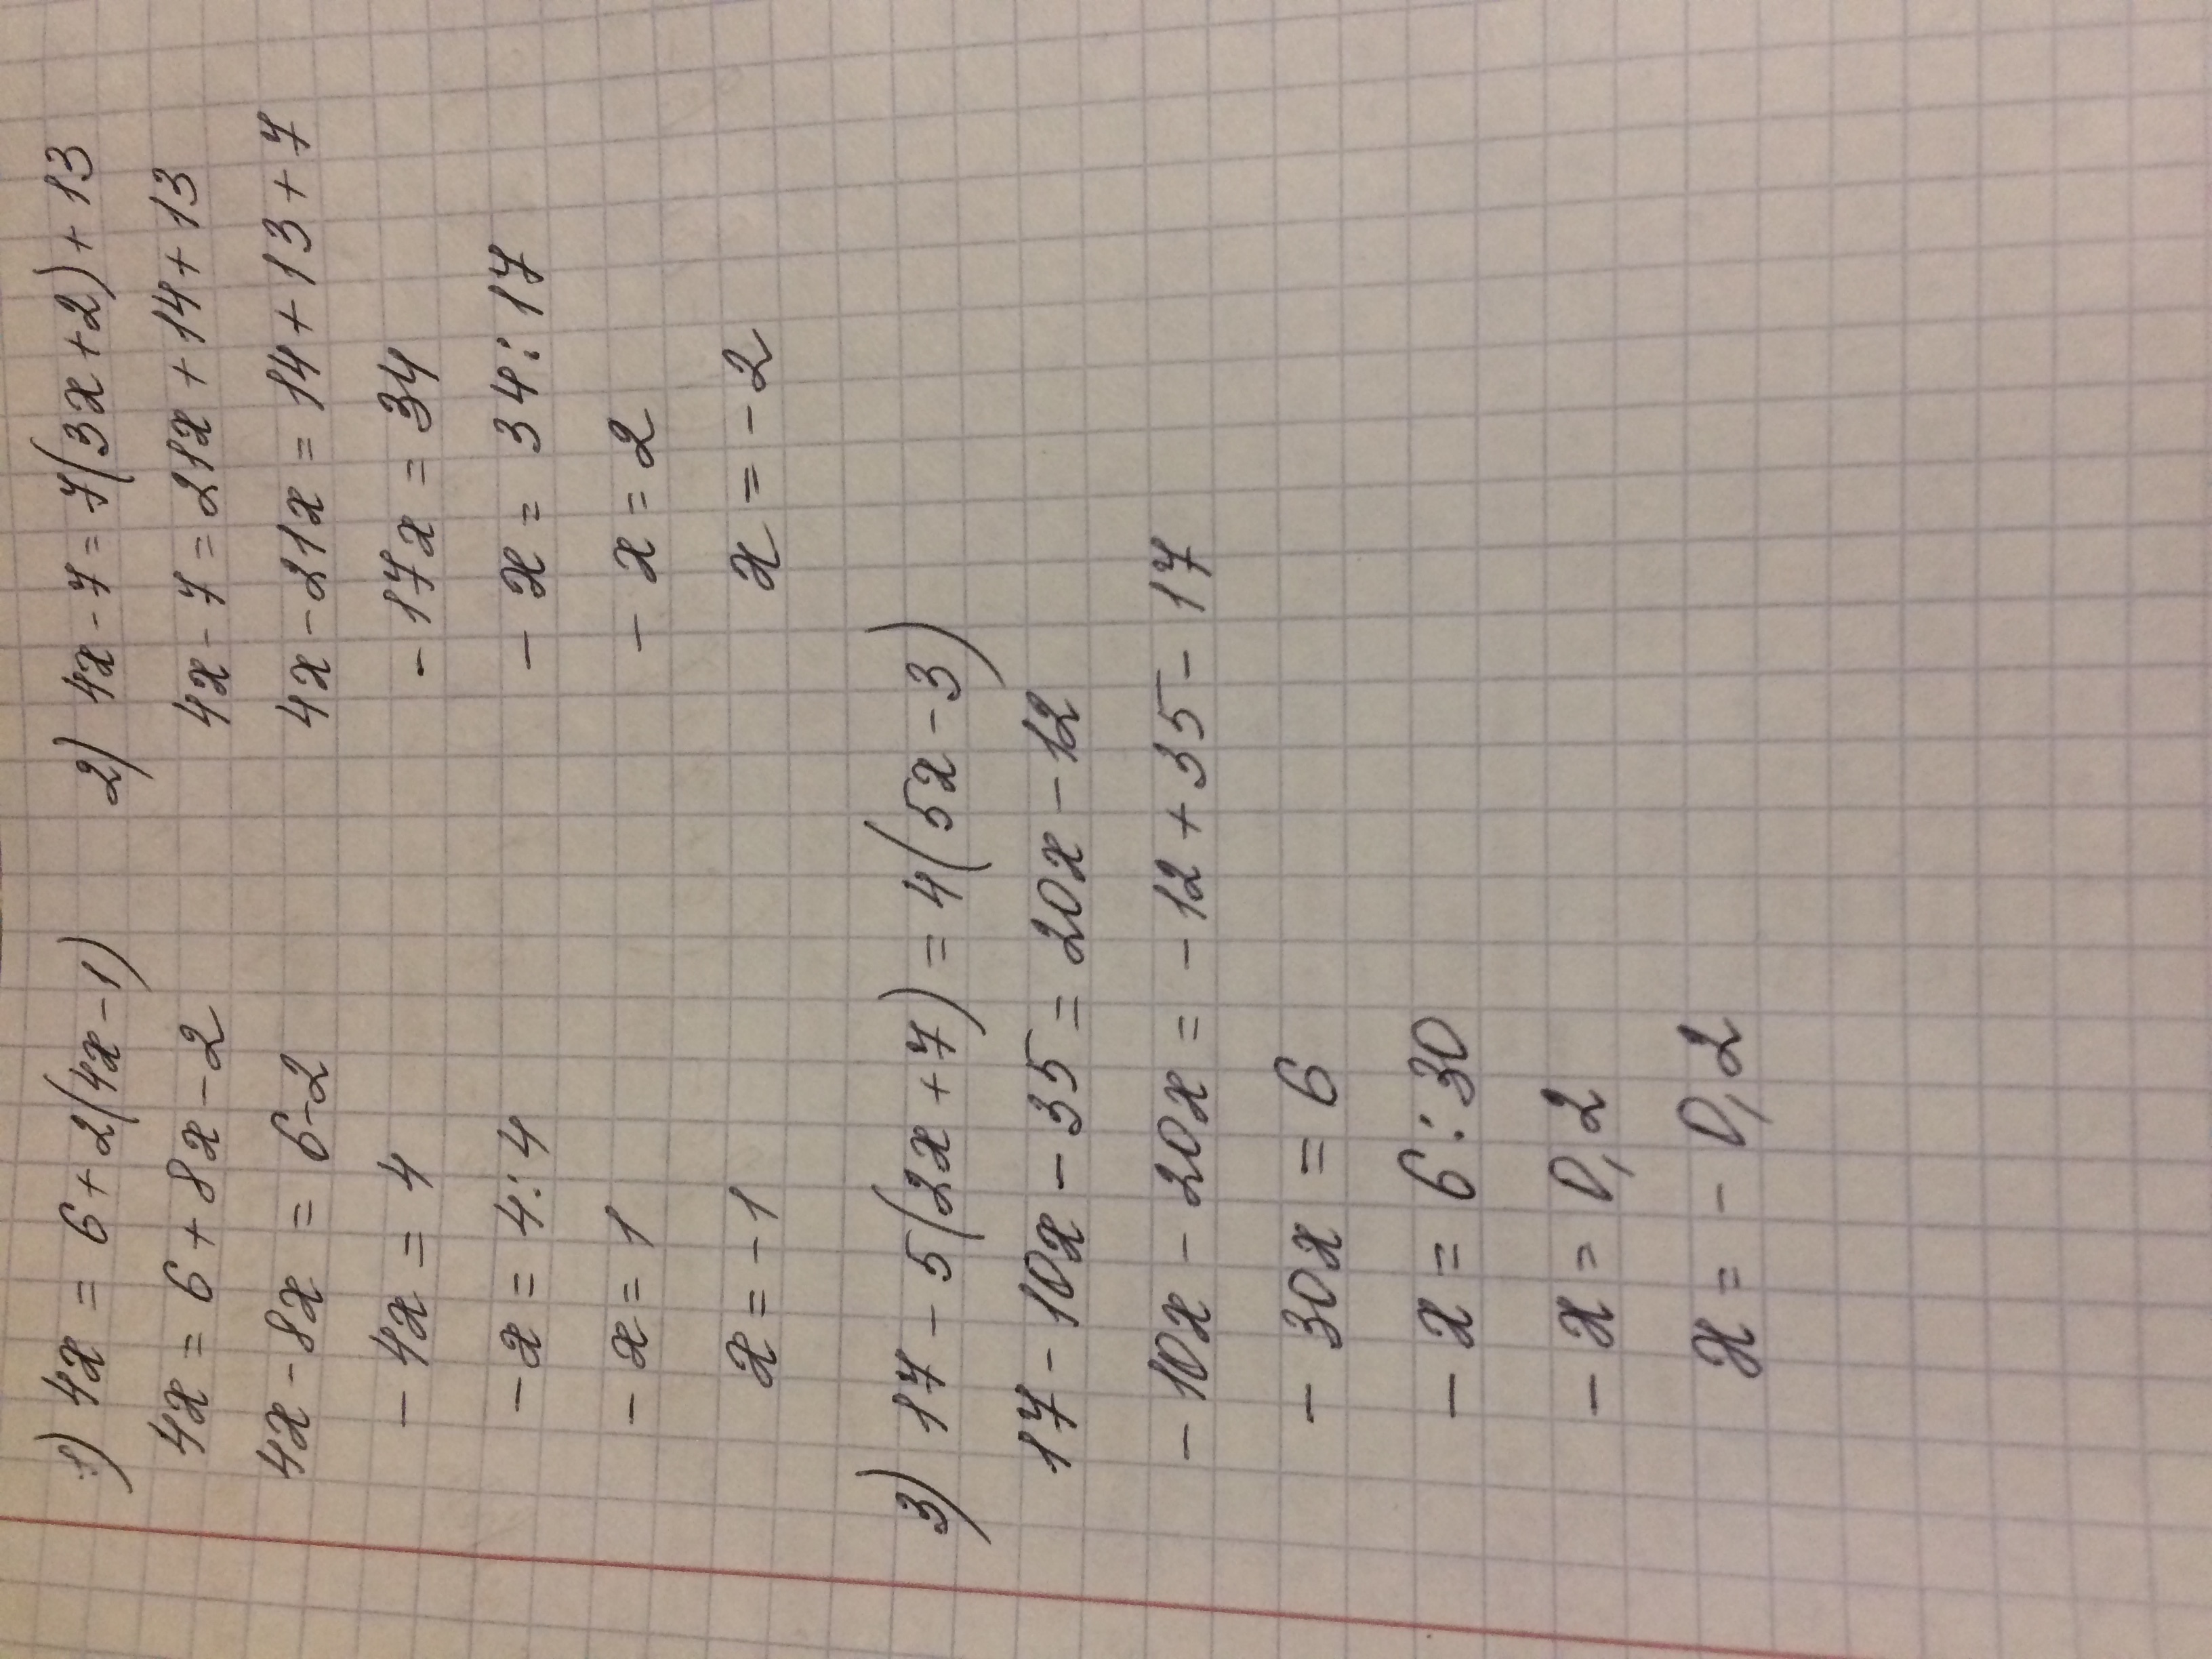 1) 4x = 6 + 2(4x - 1)
4x = 6 + 8x - 2
4x - 8x = 6 - 2
- 4x = 4
- x = 4 : 4
- x = 1
x = - 1
2) 4x - 7 = 7(3x + 2) + 13
4x - 7 = 21x + 14 + 13
4x - 21x = 14 + 13 + 7
- 17x = 34
- x = 34 : 17
- x = 2
x = - 2
3) 17 - 5(2x + 7) = 4(5x - 3)
17 - 10x - 35 = 20x - 12
- 10x - 20x = - 12 + 35 - 17
- 30x = 6
- x = 6 : 30
- x = 0,2
x = - 0,2